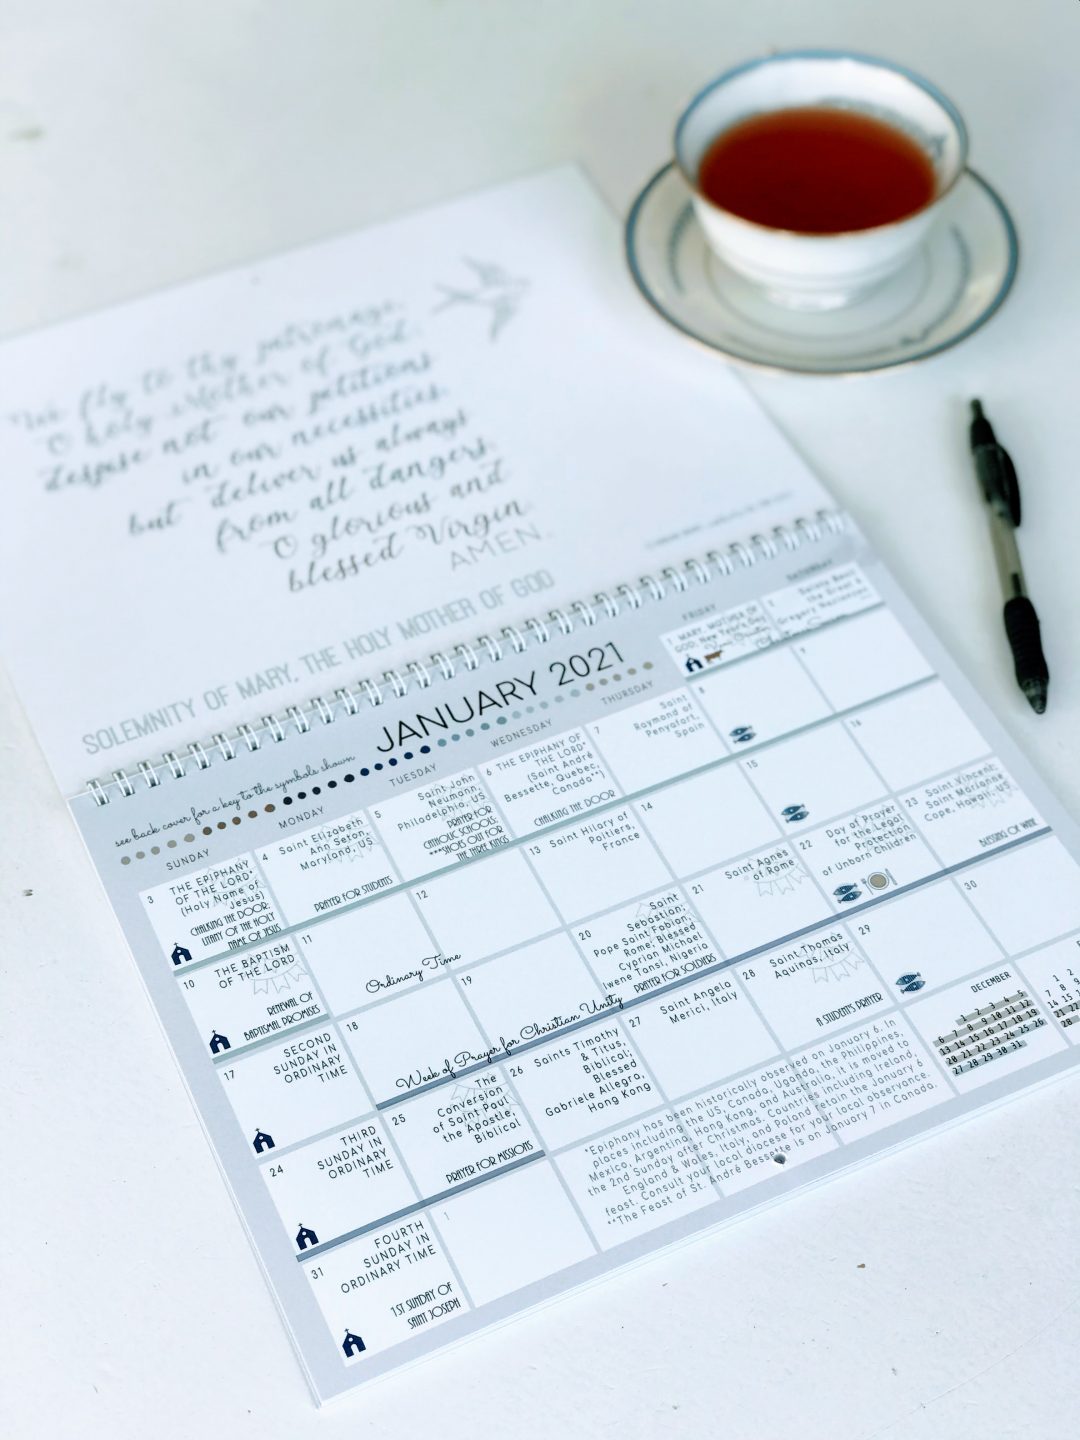 We fly to thy patronage,
O holy Mother of God;
despise not our petitions
in our necessities,
but deliver us always
from all dangers,
O glorious and
blessed Virgin.
AMEN.
SOLEMNITY OF MARY, THE HOLY MOTHER OF GOD
see back cover for a key to the symbols shown
JANUARY 2021
SUNDAY
MONDAY
TUESDAY
WEDNESDAY
THURSDAY
FRIDAY
SATURDAY
1 MARY, MOTHER OF
GOD, New Year's Day
2
Gregory Nazianzen
3
THE EPIPHANY
OF THE LORD*
(Holy Name of
Jesus)
CHALKING THE DOOR;
LITANY OF THE HOLY
NAME OF JESUS
4
Saint Elizabeth
Ann Seton,
Maryland, US
PRAYER FOR STUDENTS
5
Saint John
Neumann,
Philadelphia, US
PRAYER FOR
CATHOLIC SCHOOLS;
***SHOES OUT FOR
THE THREE KINGS
6 THE EPIPHANY OF
THE LORD*
(Saint André
Bessette, Quebec,
Canada**)
CHALKING THE DOOR
7
Saint
Raymond of
Penyafort,
Spain
8
9
10
THE BAPTISM
OF THE LORD
RENEWAL OF
BAPTISMAL PROMISES
11
Ordinary Time
12
13 Saint Hilary of
Poitiers,
France
14
15
16
17
SECOND
SUNDAY IN
ORDINARY
TIME
18
Week of Prayer for Christian Unity
19
20
Saint
Sebastian;
Pope Saint Fabian,
Rome; Blessed
Cyprian Michael
Iwene Tansi, Nigeria
PRAYER FOR SOLDIERS
21
Saint Agnes
of Rome
22
Day of Prayer
for the Legal
Protection
of Unborn Children
23 Saint Vincent;
Saint Marianne
Cope, Hawaii, US
BLESSING OF WINE
24
THIRD
SUNDAY IN
ORDINARY
TIME
25
The
Conversion
of Saint Paul
the Apostle,
Biblical
PRAYER FOR MISSIONS
26 Saints Timothy
& Titus,
Biblical;
Blessed
Gabriele Allegra,
Hong Kong
27 Saint Angela
Merici, Italy
28
Saint Thomas
Aquinas, Italy
A STUDENT'S PRAYER
29
30
31
FOURTH
SUNDAY IN
ORDINARY TIME
1ST SUNDAY OF
SAINT JOSEPH
1
*Epiphany has been historically observed on January 6. In
places including the US, Canada, Uganda, the Philippines,
Mexico, Argentina, Hong Kong, and Australia, it is moved to
the 2nd Sunday after Christmas. Countries including Ireland,
England & Wales, Italy, and Poland retain the January 6
feast. Consult your local diocese for your local observance.
**The Feast of St. André Bessette is on January 7 in Canada.
DECEMBER
1 2 3 4 5
6 7 8 9 10 11 12
13 14 15 16 17 18 19
20 21 22 23 24 25 26
27 28 29 30 31